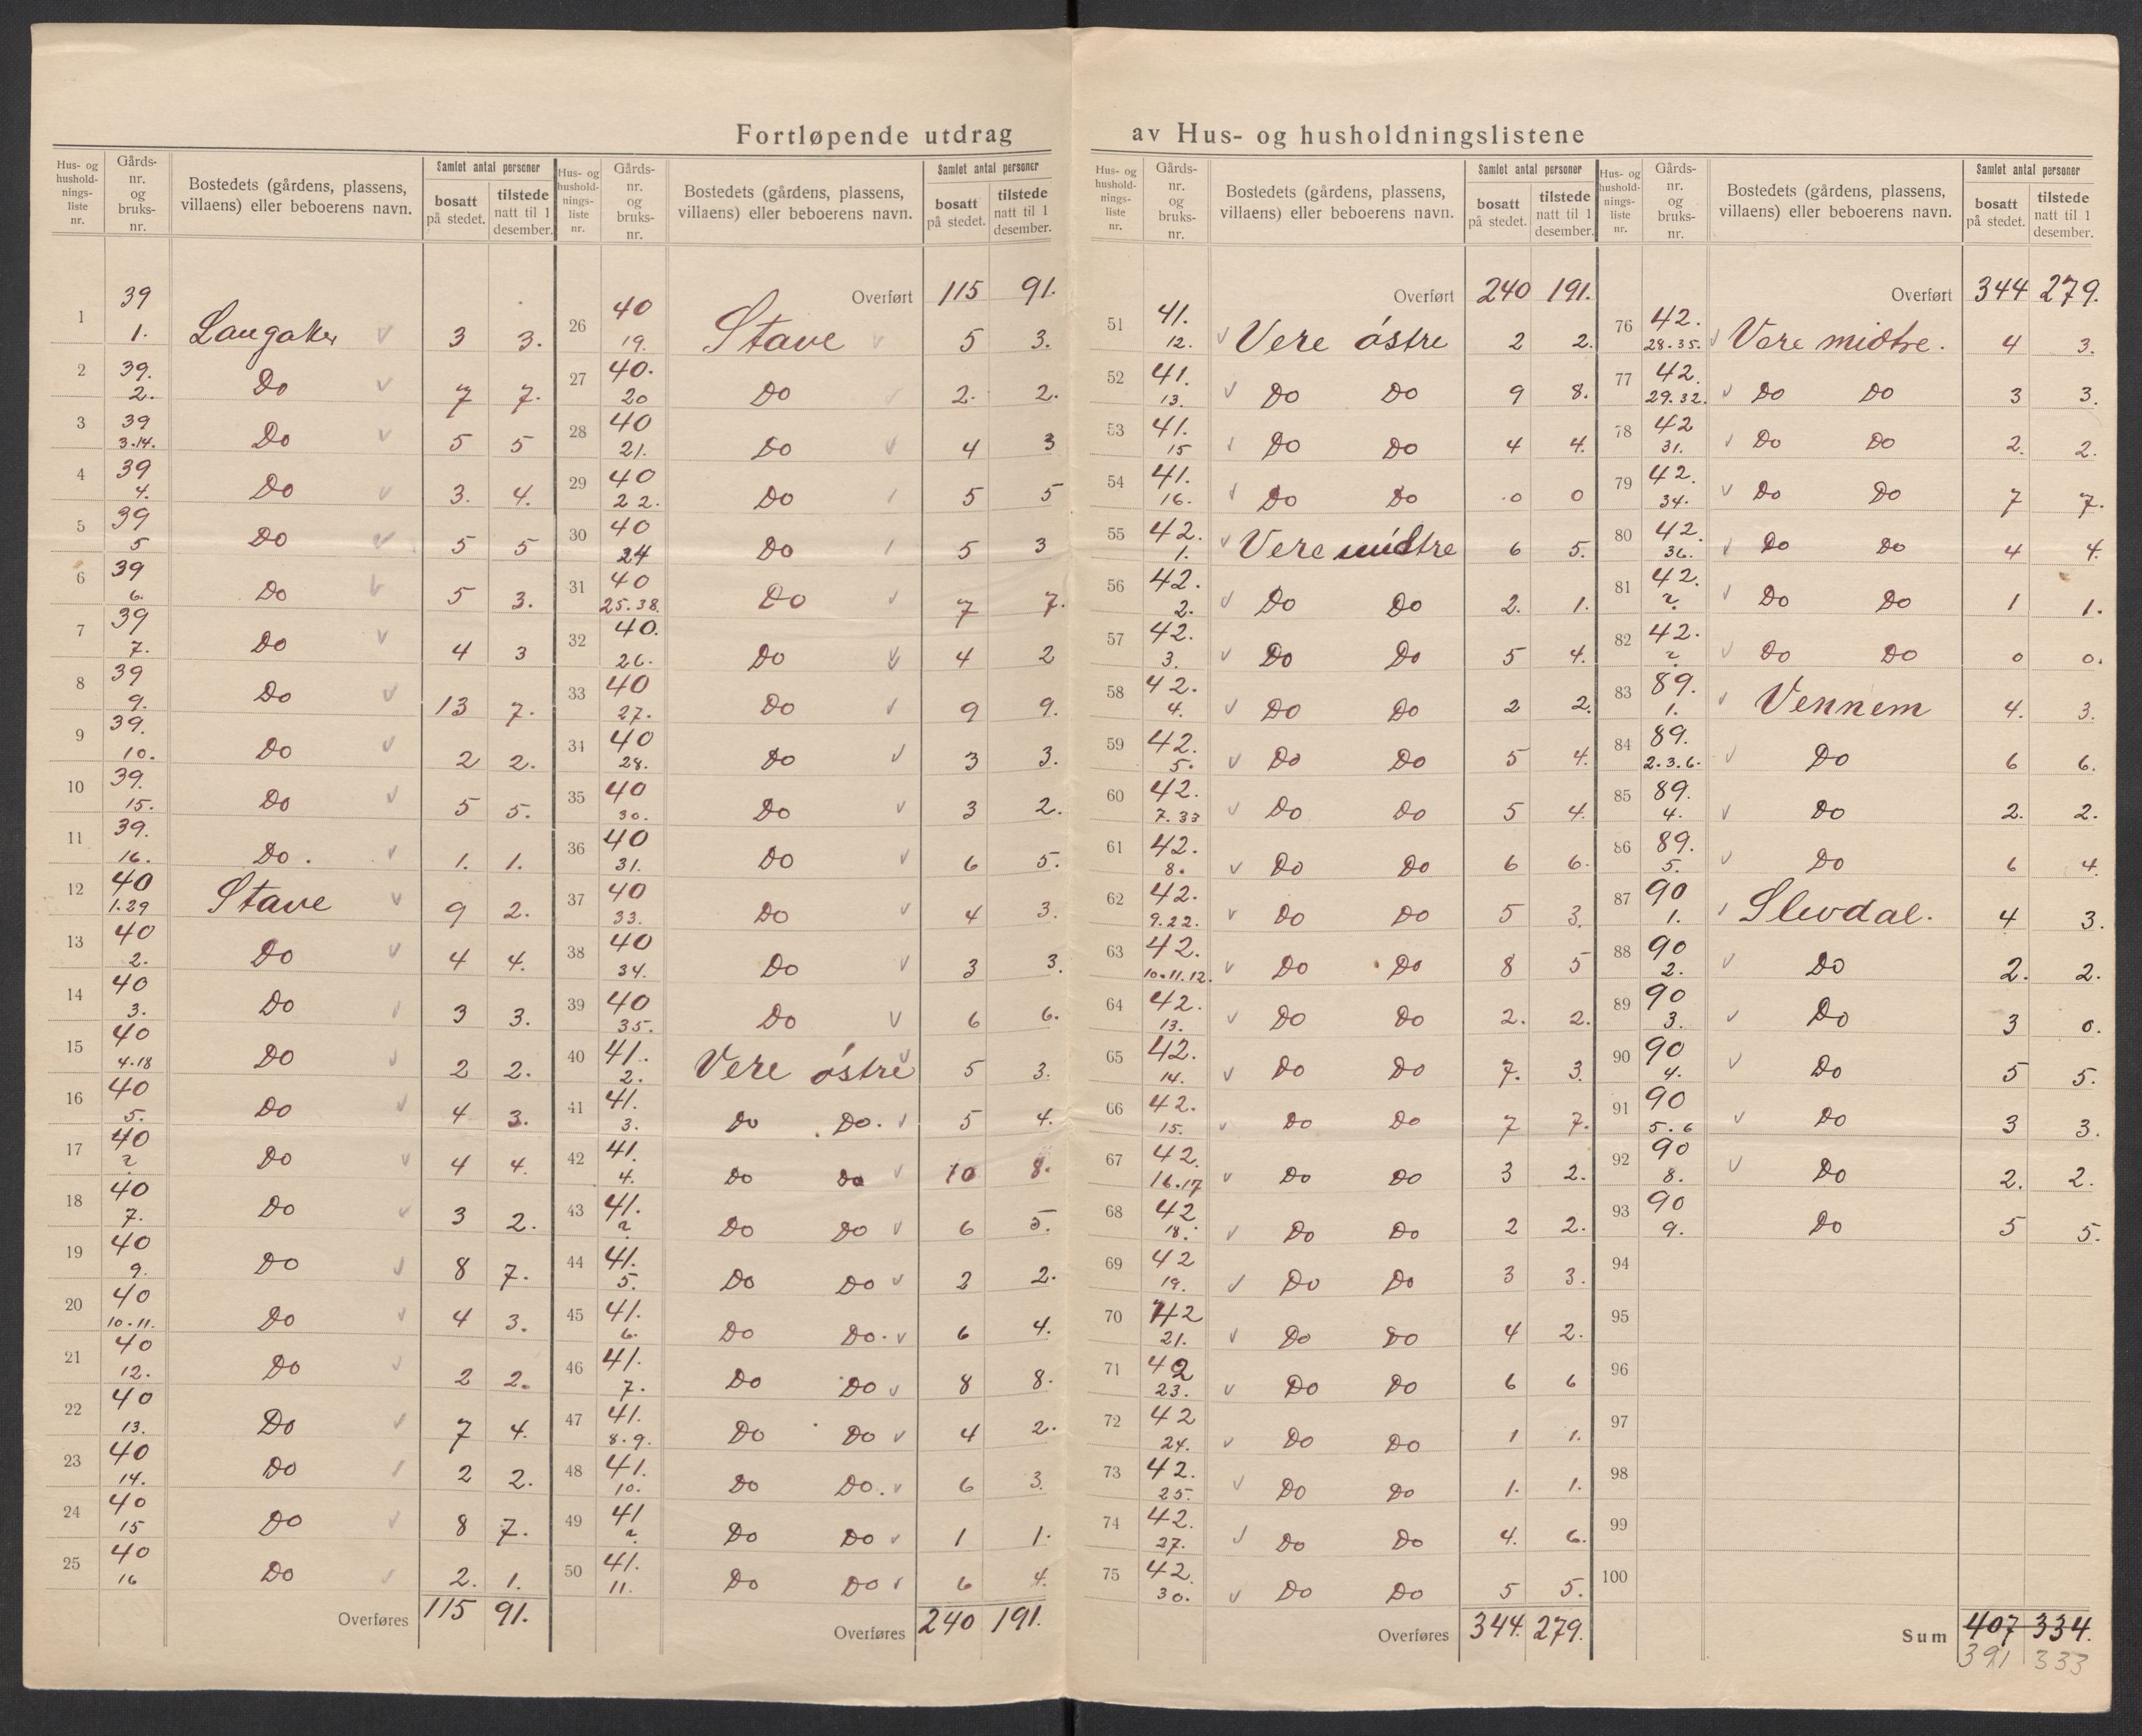 Fortløpende utdrag av Hus- og husholdningslistene
Hus- og husholdnings-liste nr. | Gårds-nr. og bruks-nr. | Bostedets (gårdens, plassens, villaens) eller beboerens navn. | Samlet antal personer | bosatt på stedet. | tilstede natt til 1 desember.
1 | 39 1. | Langaker | 3 | 3.
2 | 39. 2. | Do | 7 | 7.
3 | 39 3.14. | Do | 5 | 5
4 | 39 4. | Do | 3. | 4.
5 | 39 5 | Do | 5 | 5
6 | 39 6. | Do | 5 | 3.
7 | 39 7. | Do | 4 | 3
8 | 39 9. | Do | 13 | 7.
9 | 39. 10. | Do | 2 | 2.
10 | 39. 15. | Do | 5 | 5.
11 | 39. 16. | Do. | 1. | 1.
12 | 40 1.29 | Stave | 9 | 2.
13 | 40 2. | Do | 4 | 4.
14 | 40 3. | Do | 3 | 3.
15 | 40 4.18 | Do | 2 | 2.
16 | 40 5. | Do | 4 | 3.
17 | 40 ? | Do | 4 | 4.
18 | 40 7. | Do | 3 | 2.
19 | 40 9. | Do | 8 | 7.
20 | 40 10.11. | Do | 4 | 3.
21 | 40 12. | Do | 2 | 2.
22 | 40 13. | Do | 7 | 4.
23 | 40 14. | Do | 2 | 2.
24 | 40 15 | Do | 8 | 7.
25 | 40 16 | Do | 2. | 1.
Overføres 115 91.
Hus- og husholdnings-liste nr. | Gårds-nr. og bruks-nr. | Bostedets (gårdens, plassens, villaens) eller beboerens navn. | Samlet antal personer | bosatt på stedet. | tilstede natt til 1 desember.
Overført 115 91.
26 | 40 19. | Stave | 5 | 3.
27 | 40. 20 | Do | 2. | 2.
28 | 40 21. | Do | 4 | 3
29 | 40 22. | Do | 5 | 5
30 | 40 24 | Do | 5 | 3
31 | 40 25.38. | Do | 7 | 7.
32 | 40. 26. | Do | 4 | 2
33 | 40 27. | Do | 9 | 9.
34 | 40 28. | Do | 3 | 3.
35 | 40 30. | Do | 3 | 2.
36 | 40 31. | Do | 6 | 5.
37 | 40 33. | Do | 4 | 3.
38 | 40 34. | Do | 3 | 3.
39 | 40 35. | Do | 6 | 6.
40 | 41. 2. | Vere østre | 5 | 3.
41 | 41. 3. | Do Do. | 5 | 4.
42 | 41. 4. | Do Do | 10 | 8.
43 | 41. ? | Do Do | 6 | 5.
44 | 41. 5. | Do Do | 2 | 2.
45 | 41. 6. | Do Do. | 6 | 4.
46 | 41. 7. | Do Do | 8 | 8.
47 | 41. 8.9. | Do Do | 4 | 2.
48 | 41. 10. | Do Do. | 6 | 3.
49 | 41 ? | Do Do | 1 | 1.
50 | 41. 11. | Do Do | 6 | 4.
Overføres 240 191.
Hus- og husholdnings-liste nr. | Gårds-nr. og bruks-nr. | Bostedets (gårdens, plassens, villaens) eller beboerens navn. | Samlet antal personer | bosatt på stedet. | tilstede natt til 1 desember.
Overført 240 191.
51 | 41. 12. | Vere østre | 2 | 2.
52 | 41. 13. | Do Do | 9 | 8.
53 | 41. 15 | Do Do | 4 | 4.
54 | 41. 16. | Do Do | 0 | 0
55 | 42. 1. | Vere midtre | 6 | 5.
56 | 42. 2. | Do Do | 2. | 1.
57 | 42. 3. | Do Do | 5 | 4.
58 | 42. 4. | Do Do | 2 | 2.
59 | 42. 5. | Do Do | 5 | 4.
60 | 42. 7.33 | Do Do | 5 | 4.
61 | 42. 8. | Do Do | 6 | 6.
62 | 42. 9.22. | Do Do | 5 | 3.
63 | 42. 10.11.12. | Do Do | 8 | 5
64 | 42. 13. | Do Do | 2. | 2.
65 | 42. 14. | Do Do | 7. | 3.
66 | 42. 15. | Do Do | 7 | 7.
67 | 42. 16.17 | Do Do | 3 | 2.
68 | 42 18. | Do Do | 2 | 2.
69 | 42 19. | Do Do | 3 | 3.
70 | 42 21. | Do Do | 4 | 2.
71 | 42 23. | Do Do | 6 | 6
72 | 42 24. | Do Do | 1 | 1.
73 | 42. 25. | Do Do | 1. | 1.
74 | 42. 27. | Do Do | 4. | 6.
75 | 42. 30. | Do Do | 5 | 5.
Overføres 344. 279.
Hus- og husholdnings-liste nr. | Gårds-nr. og bruks-nr. | Bostedets (gårdens, plassens, villaens) eller beboerens navn. | Samlet antal personer | bosatt på stedet. | tilstede natt til 1 desember.
Overført 344 279.
76 | 42. 28.35. | Vere midtre. | 4 | 3.
77 | 42. 29.32. | Do Do | 3 | 3.
78 | 42 31. | Do Do | 2. | 2.
79 | 42. 34. | Do Do | 7 | 7.
80 | 42. 36. | Do Do | 4 | 4.
81 | 42. ? | Do Do | 1 | 1.
82 | 42. ? | Do Do | 0 | 0.
83 | 89. 1. | Vennem | 4. | 3.
84 | 89. 2.3.6. | Do | 6 | 6.
85 | 89. 4. | Do | 2. | 2.
86 | 89. 5. | Do | 6 | 4.
87 | 90 1. | Slevdal. | 4 | 3.
88 | 90 2. | Do | 2. | 2.
89 | 90 3. | Do | 3 | 0.
90 | 90 4. | Do | 5 | 5.
91 | 90 5.6 | Do | 3 | 3.
92 | 90 8. | Do | 2. | 2.
93 | 90 9. | Do | 5 | 5.
94
95
96
97
98
99
100
Sum 407 334.
391 333